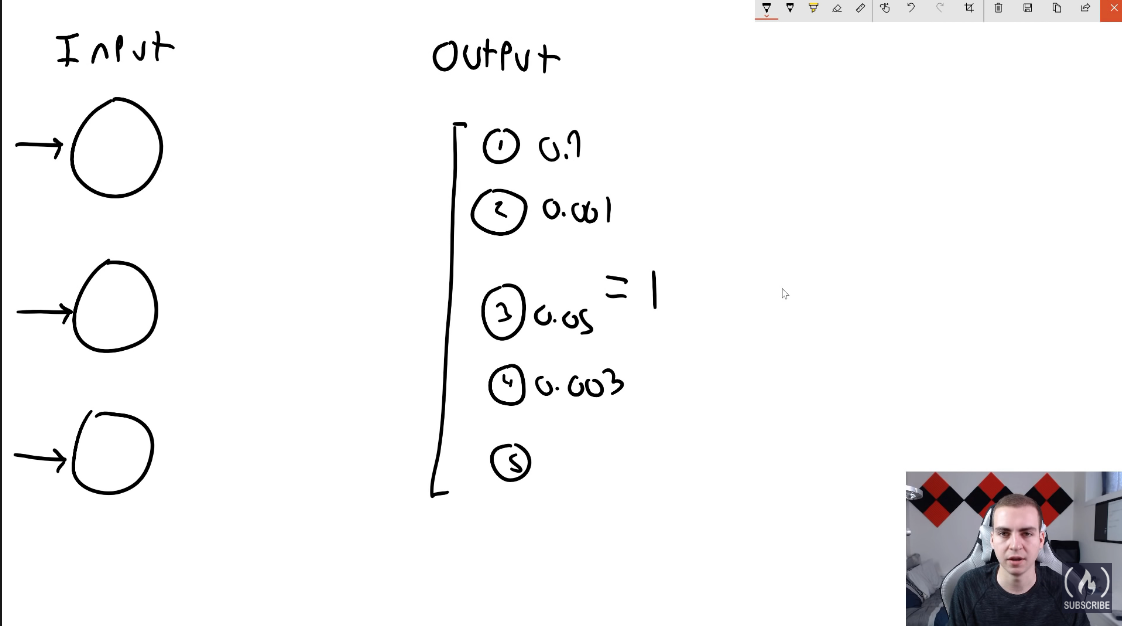 Input
Output
1 0.9
2 0.001
= 1
3 0.05
4 0.003
5
SUBSCRIBE